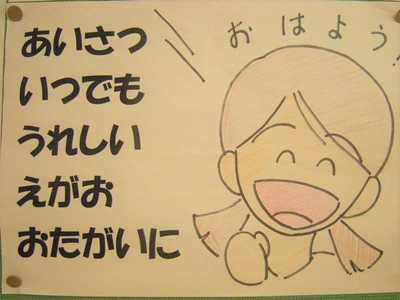 あいさつ
いつでも
うれしい
えがお
おたがいに
おはよう!